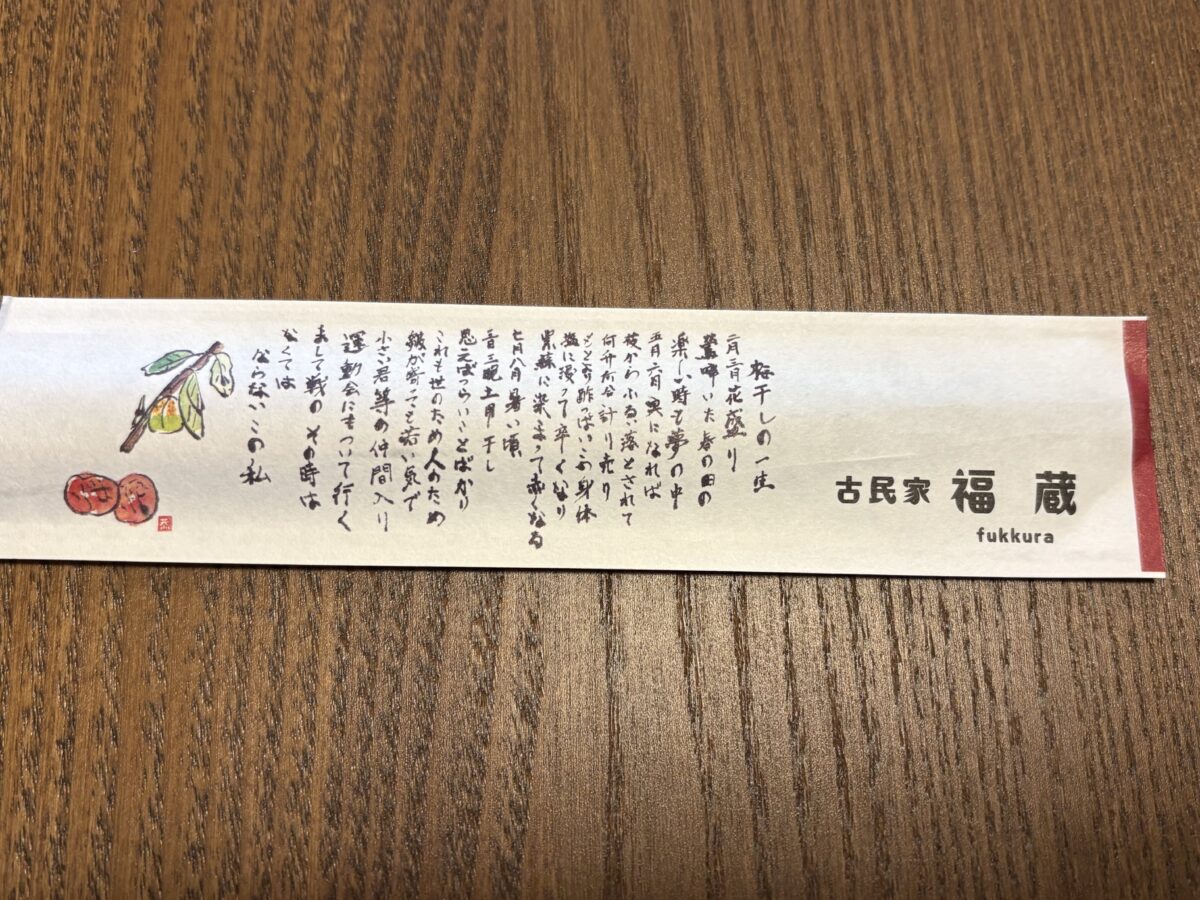 古民家 福蔵
fukkura
梅干しの一生
二月三月花盛り
鶯鳴いた春の日の
楽しい時も夢の中
五月六月実になれば
枝からふるい落とされて
何升何合計り売り
もとより酢っぱいこの身体
塩に浸って辛くなり
紫蘇に染まって赤くなる
七月八月暑い頃
三日三晩土用干し
思えばつらいことばかり
これも世のため人のため
皺が寄っても若い気で
小さい君等の仲間入り
運動会にもついて行く
まして戦のその時は
なくては
ならないこの私